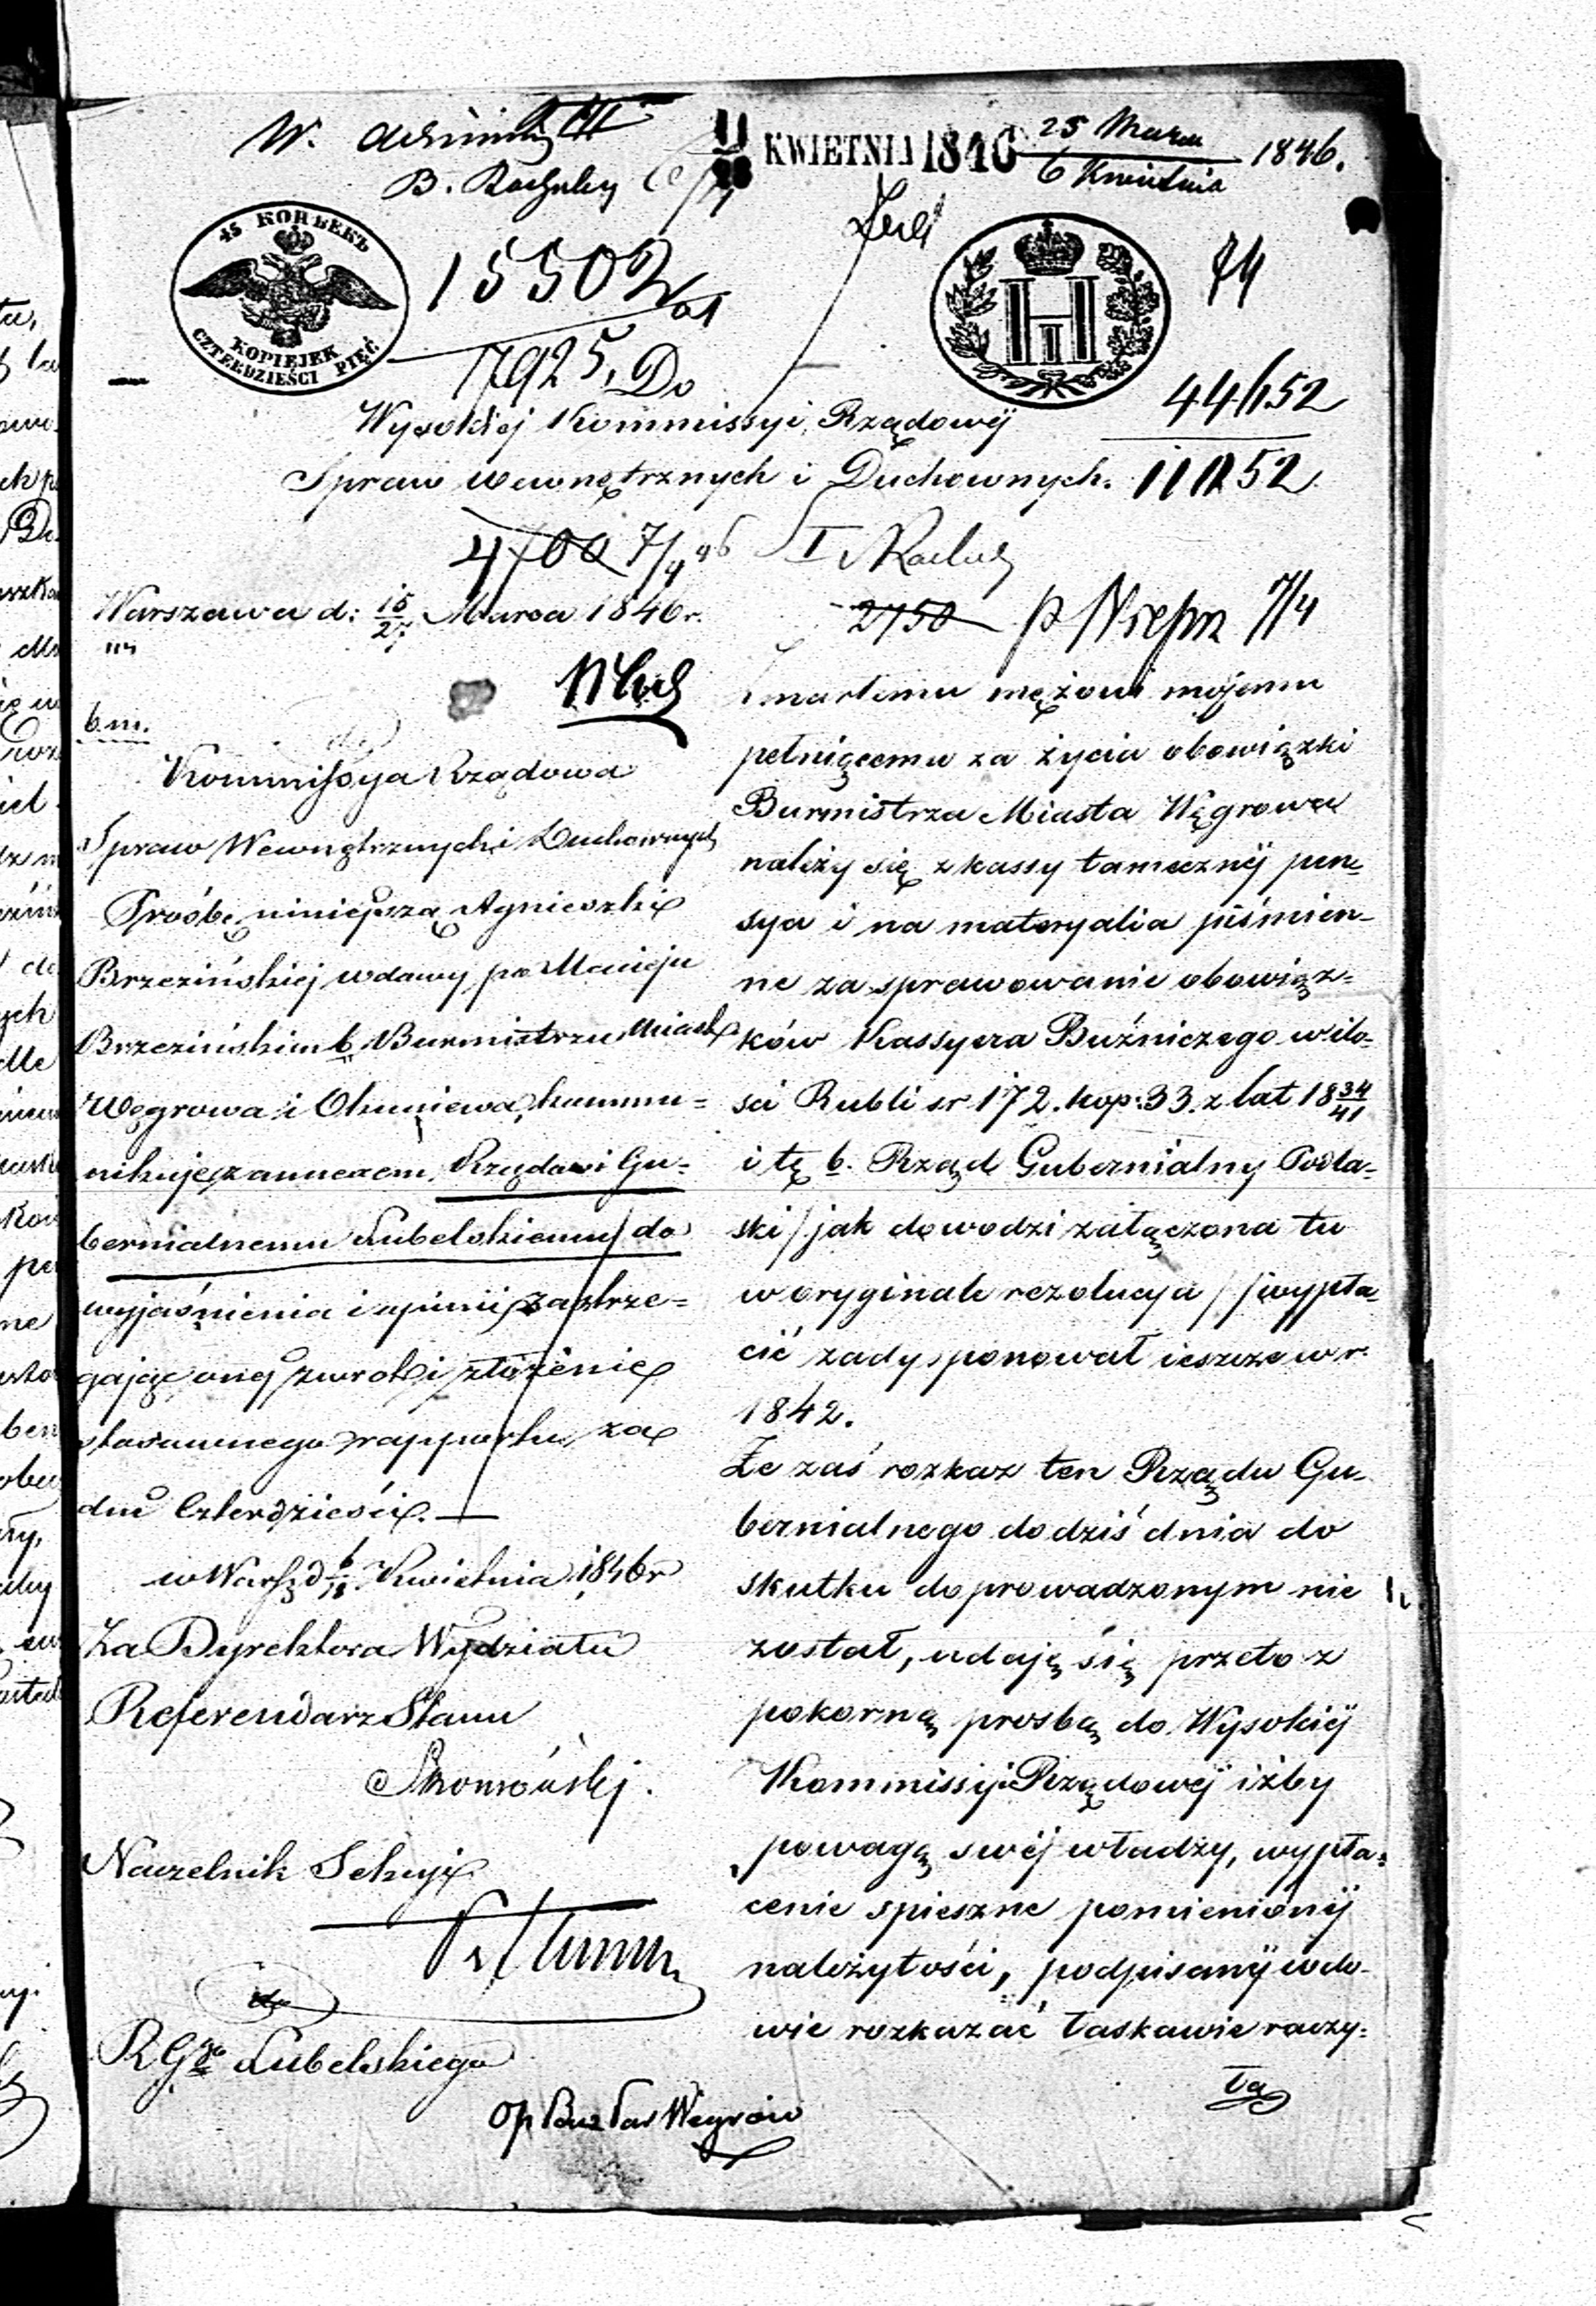 W. Administ
B. Rachuby
11 KWIETNIA 1846
25 Marca
6 Kwietnia
1846.
45 КОПѢЕКЪ
KOPIEJEK
CZTERDZIEŚCI PIĘĆ
15502
17925, Do
H II
74
44/152
Wysokiej Kommissyi Rządowéj
Spraw wewnętrznych i Duchownych.
11252
4700 7/4 46
Warszawa d: 15/27 Marca 1846 r.
2750
7/4
Zmarłemu mężowi mojemu
pełniącemu za życia obowiązki
Burmistrza Miasta Węgrowa
należy się z kassy tamecznéj pen-
sya i na materyalia piśmien-
ne za sprawowanie obowiąz-
ków Kassyera Bóźniczego w ilo-
ści Rubli sr. 172. kop: 33. z lat 18 34/41
i tę b. Rząd Gubernialny Podla-
ski / jak dowodzi załączona tu
w oryginale rezolucya / wypła-
cić zadysponował ieszcze w r.
1842.
Że zaś rozkaz ten Rządu Gu-
bernialnego do dziś dnia do
skutku doprowadzonym nie
został, udaję się przeto z
pokorną prosbą do Wysokiéj
Kommissyi Rządowéj iżby
powagą swéj władzy, wypła-
cenie spieszne pomienionéj
należytości, podpisanéj wdo-
wie rozkazać łaskawie raczy-
ła
b. m.
Kommissya Rządowa
Spraw Wewnętrznych i Duchownych
Prośbę niniejszą Agnieszki
Brzezińskiej wdowy po Macieju
Brzezińskim b. Burmistrzu Miasta
Węgrowa i Okuniewa, kommu-
nikuje z annexem, Rządowi Gu-
bernialnemu Lubelskiemu do
wyjaśnienia i opinii, zastrze-
gając onej zwrot i złożenie
stosownego rapportu, za
dni Czterdzieści.
w Warsz. d 6/18 Kwietnia 1846 r
Za Dyrektora Wydziału
Referendarz Stanu
Naczelnik Sekcyi
do
R Ggo Lubelskiego
Węgrów